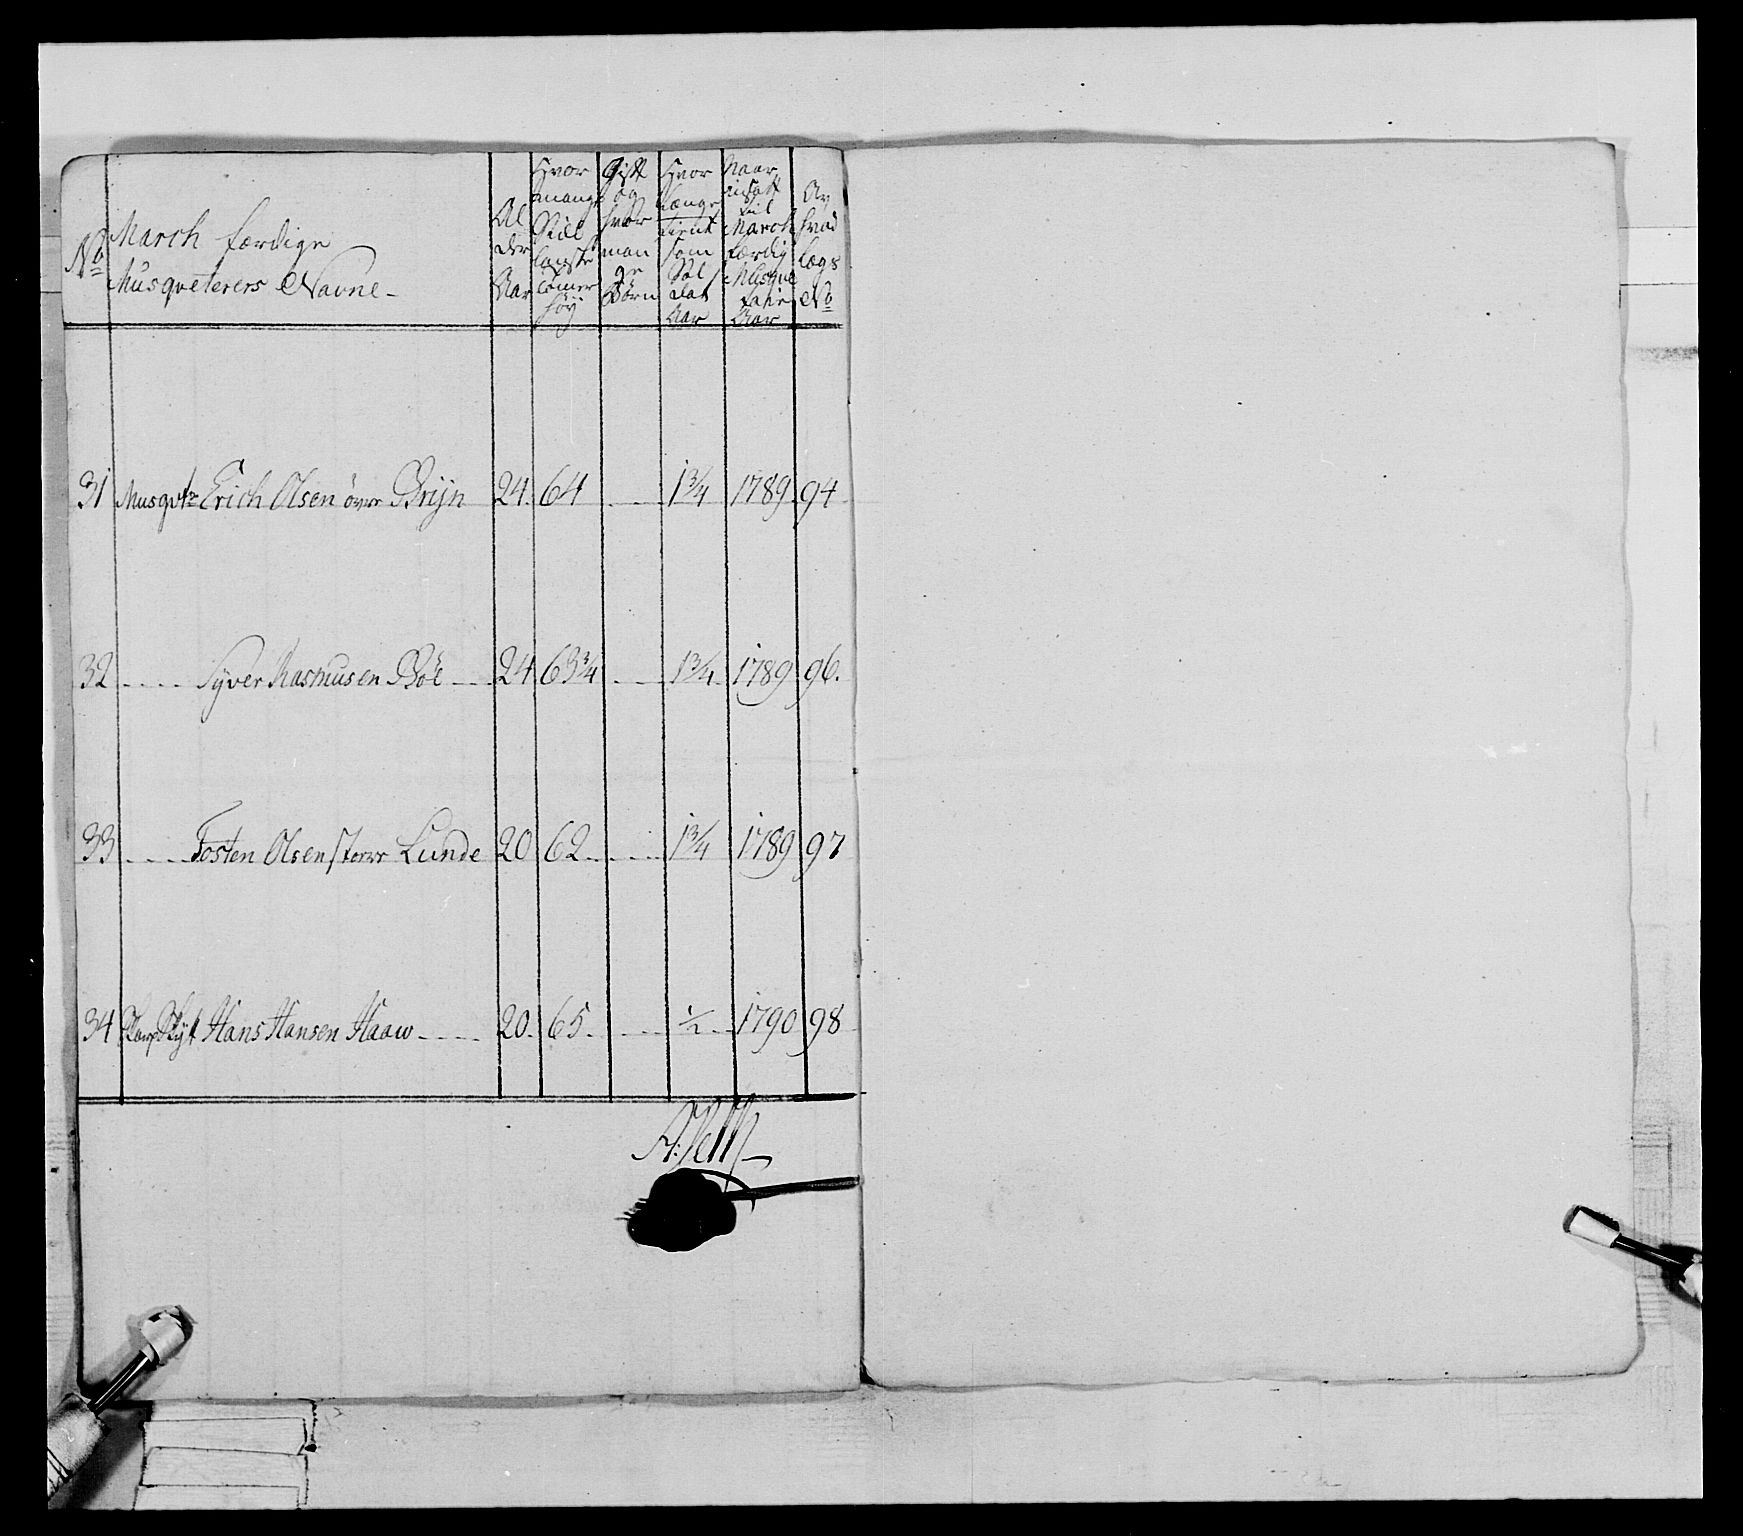 No
March færdige
Musqveterers Navne -
Al
der
Aar
Hvor
mange
Siæl
lanske
Tomer
høy
Gift
og
hvor
man
ge
Børn
Hvor
længe
tient
som
Sol
dat
Aar
Naar
indsatt
til
March
færdig
Aar
Av
hvad
Lægs
No
31 Musqvtr Erich Olsen øvre Brijn 24. 64 1¾ 1789 94
32 Syver Rasmusen Bøe 24 63¾ 1¾ 1789 96.
33 Tosten Olsen store Lunde 20 62 1¾ 1789 97
34 Hans Hansen Haaw 20. 65. ½ 1790 98